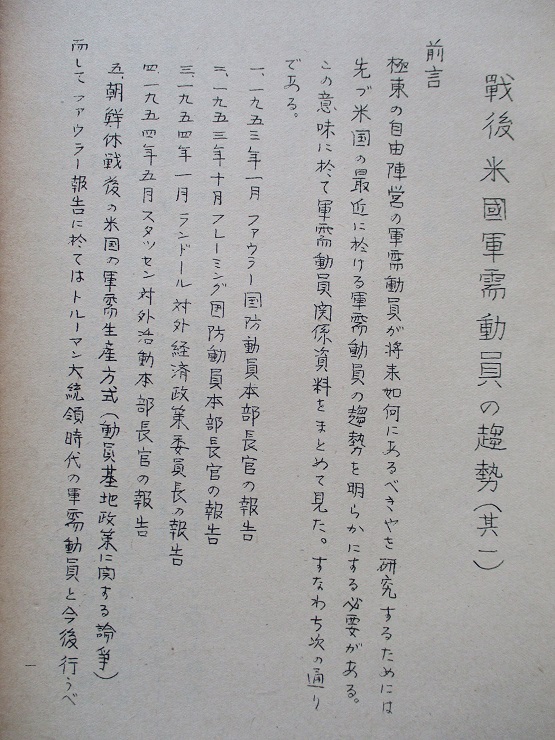 戰後米國軍需動員の趨勢(其一)
前言
極東の自由陣営の軍需動員が将来如何にあるべきやを研究するためには
先づ米国の最近に於ける軍需動員の趨勢を明らかにする必要がある。
この意味に於て軍需動員関係資料をまとめて見た。すなわち次の通り
である。
一、一九五三年一月ファウラー国防動員本部長官の報告
二、一九五三年十月フレーミング国防動員本部長官の報告
三、一九五四年一月ランドール対外経済政策委員長の報告
四、一九五四年五月スタッセン対外活動本部長官の報告
五、朝鮮休戦後の米国の軍需生産方式(動員基地政策に関する論争)
而してファウラー報告に於てはトルーマン大統領時代の軍需動員と今後行うべ
一